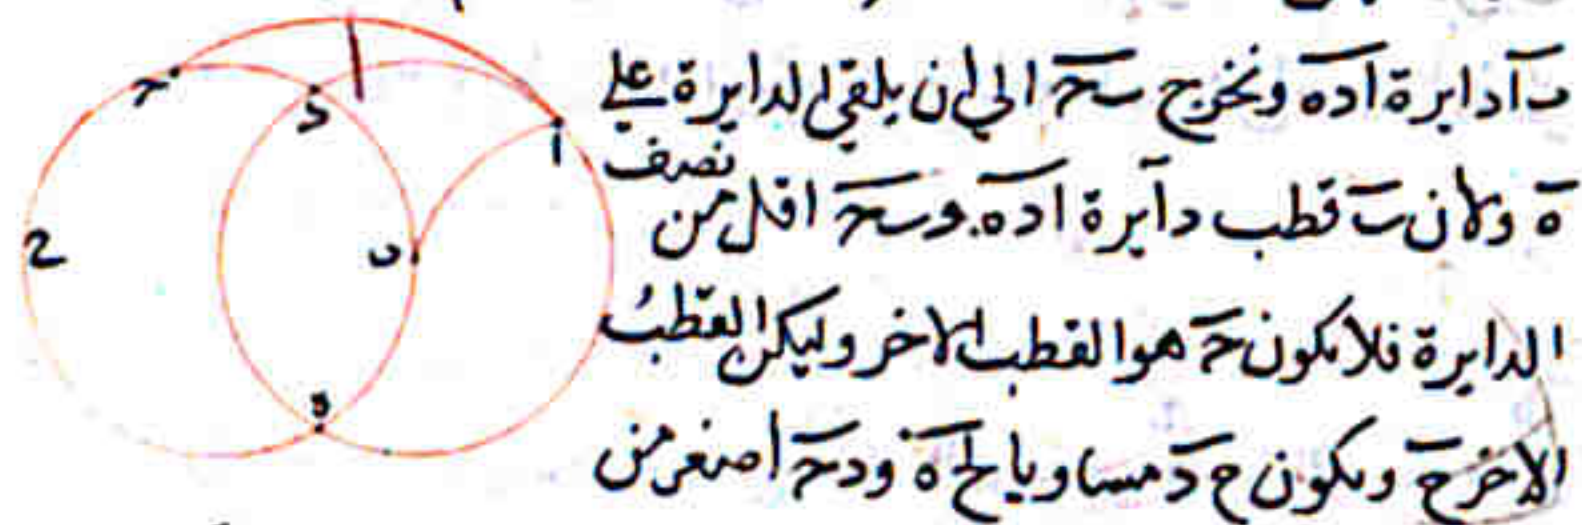 ب آ دايرة ا د ه ونخرج ب ج الي ان يلقي الدايرة علي
ه ولان ب قطب دايرة ا د ه وب ج اقل من نصف
الدايرة فلا يكون ج هو القطب الاخر وليكن القطب
الاخر ح ويكون ح د مساويا لح ه ود ج اصغر من
ج
د
ا
ب
ح
ه